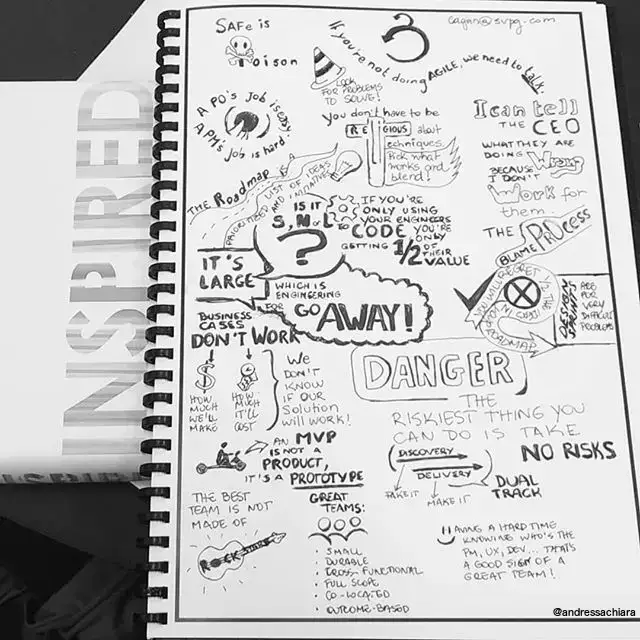 INSPIRED
SAFe is
Poison
cagan@svpg.com
If you're not doing AGILE, we need to talk.
LOOK
FOR PROBLEMS
TO SOLVE!
A PO'S JOB is easy.
A PM's job is hard.
you don't have to be
RELIGIOUS about
techniques.
Pick what
works and
blend!
I can tell
THE CEO
WHAT THEY ARE
DOING WRONG
BECAUSE
I DON'T
Work for
them
THE Roadmap IS A
PRIORITIZED LIST OF IDEAS
AND INITIATIVES
IS IT
S, M or L
?
IF YOU'RE
ONLY USING
YOUR ENGINEERS
TO CODE YOU'RE
ONLY
GETTING 1/2 OF
THEIR
VALUE
THE PROCESS
BLAME
IT'S
LARGE
WHICH IS
ENGINEERING
FOR
GO AWAY!
YOU WILL REGRET
ROADMAP
DESIGN
SPRINTS
ARE
FOR
VERY
DIFFICULT
PROBLEMS
BUSINESS
CASES
DON'T WORK
HOW
MUCH
WE'LL
MAKE
HOW
MUCH
IT'LL
COST
We
DON'T
KNOW
IF OUR
Solution
will work!
DANGER
THE
RISKIEST THING YOU
CAN DO IS TAKE
NO RISKS
AN MVP
IS NOT A
PRODUCT,
IT'S A PROTOTYPE
DISCOVERY
DELIVERY
FAKE IT
MAKE IT
DUAL
TRACK
THE BEST
TEAM IS NOT
MADE OF
ROCK STARS
GREAT
TEAMS:
• SMALL
• DURABLE
• CROSS-FUNCTIONAL
• FULL SCOPE
• CO-LOCATED
• OUTCOME-BASED
HAVING A HARD TIME
KNOWING WHO'S THE
PM, UX, DEV... THAT'S
A GOOD SIGN OF A
GREAT TEAM!
@andressachiara